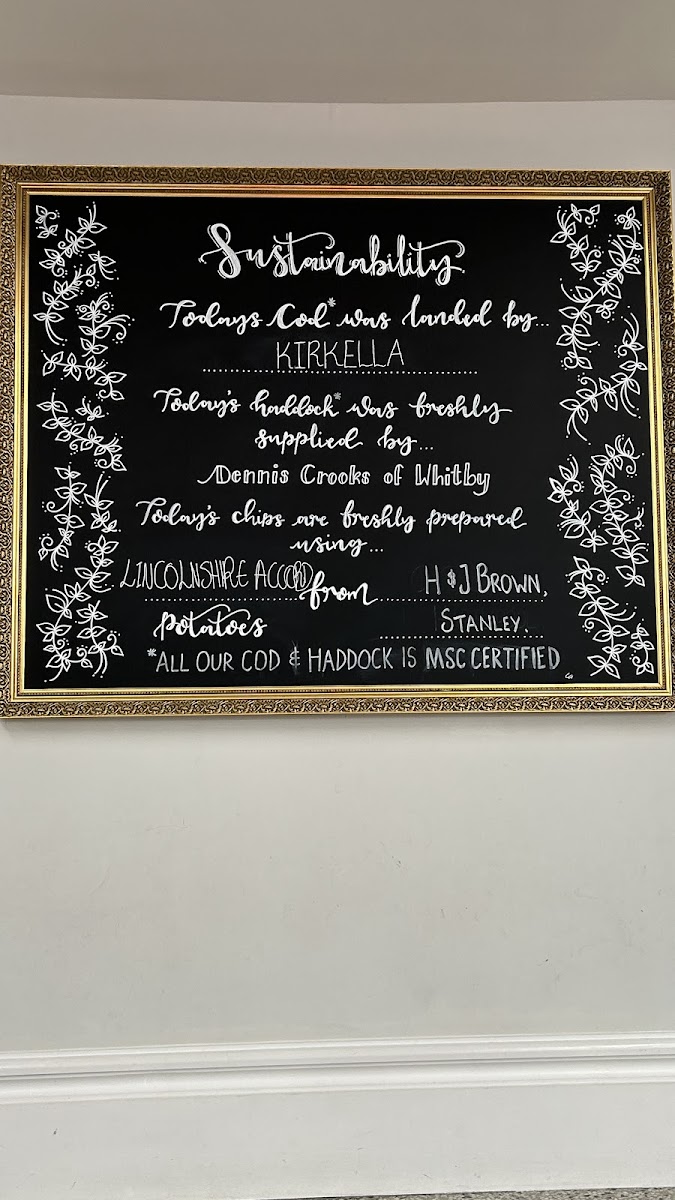 Sustainability
Todays Cod* was landed by...
KIRKELLA
Today's haddock* was freshly
supplied by...
Dennis Crooks of Whitby
Today's chips are freshly prepared
using...
LINCOLNSHIRE ACCORD from H & J BROWN,
potatoes STANLEY.
*ALL OUR COD & HADDOCK IS MSC CERTIFIED